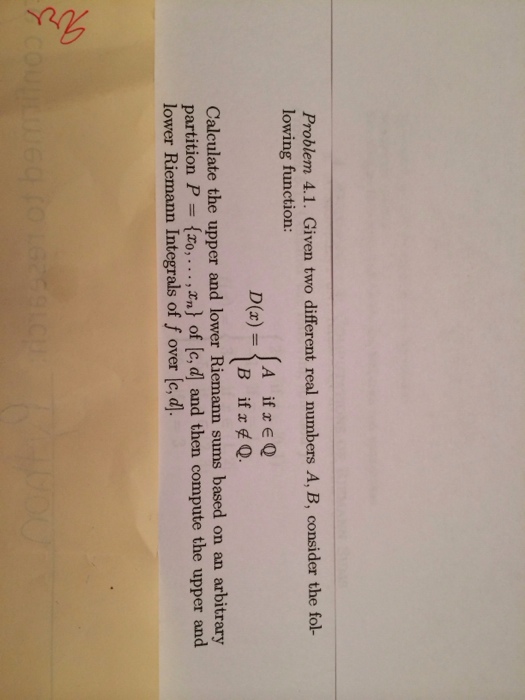 Problem 4.1. Given two different real numbers A, B, consider the fol-
lowing function:
D(x) = { A if x ∈ ℚ
B if x ∉ ℚ.
Calculate the upper and lower Riemann sums based on an arbitrary
partition P = {x₀, . . . , xₙ} of [c, d] and then compute the upper and
lower Riemann Integrals of f over [c, d].